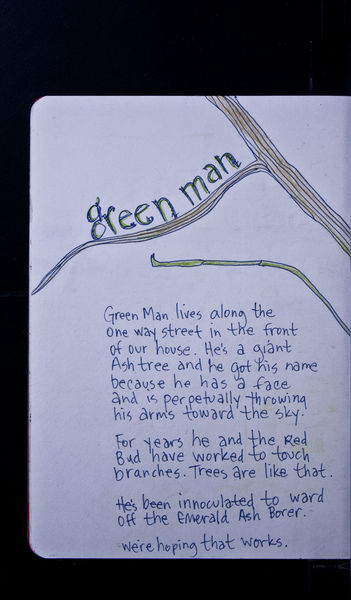 green man
Green Man lives along the
one way street in the front
of our house. He's a giant
Ash tree and he got his name
because he has a face
and is perpetually throwing
his arms toward the sky.
For years he and the Red
Bud have worked to touch
branches. Trees are like that.
He's been innoculated to ward
off the Emerald Ash Borer.
we're hoping that works.